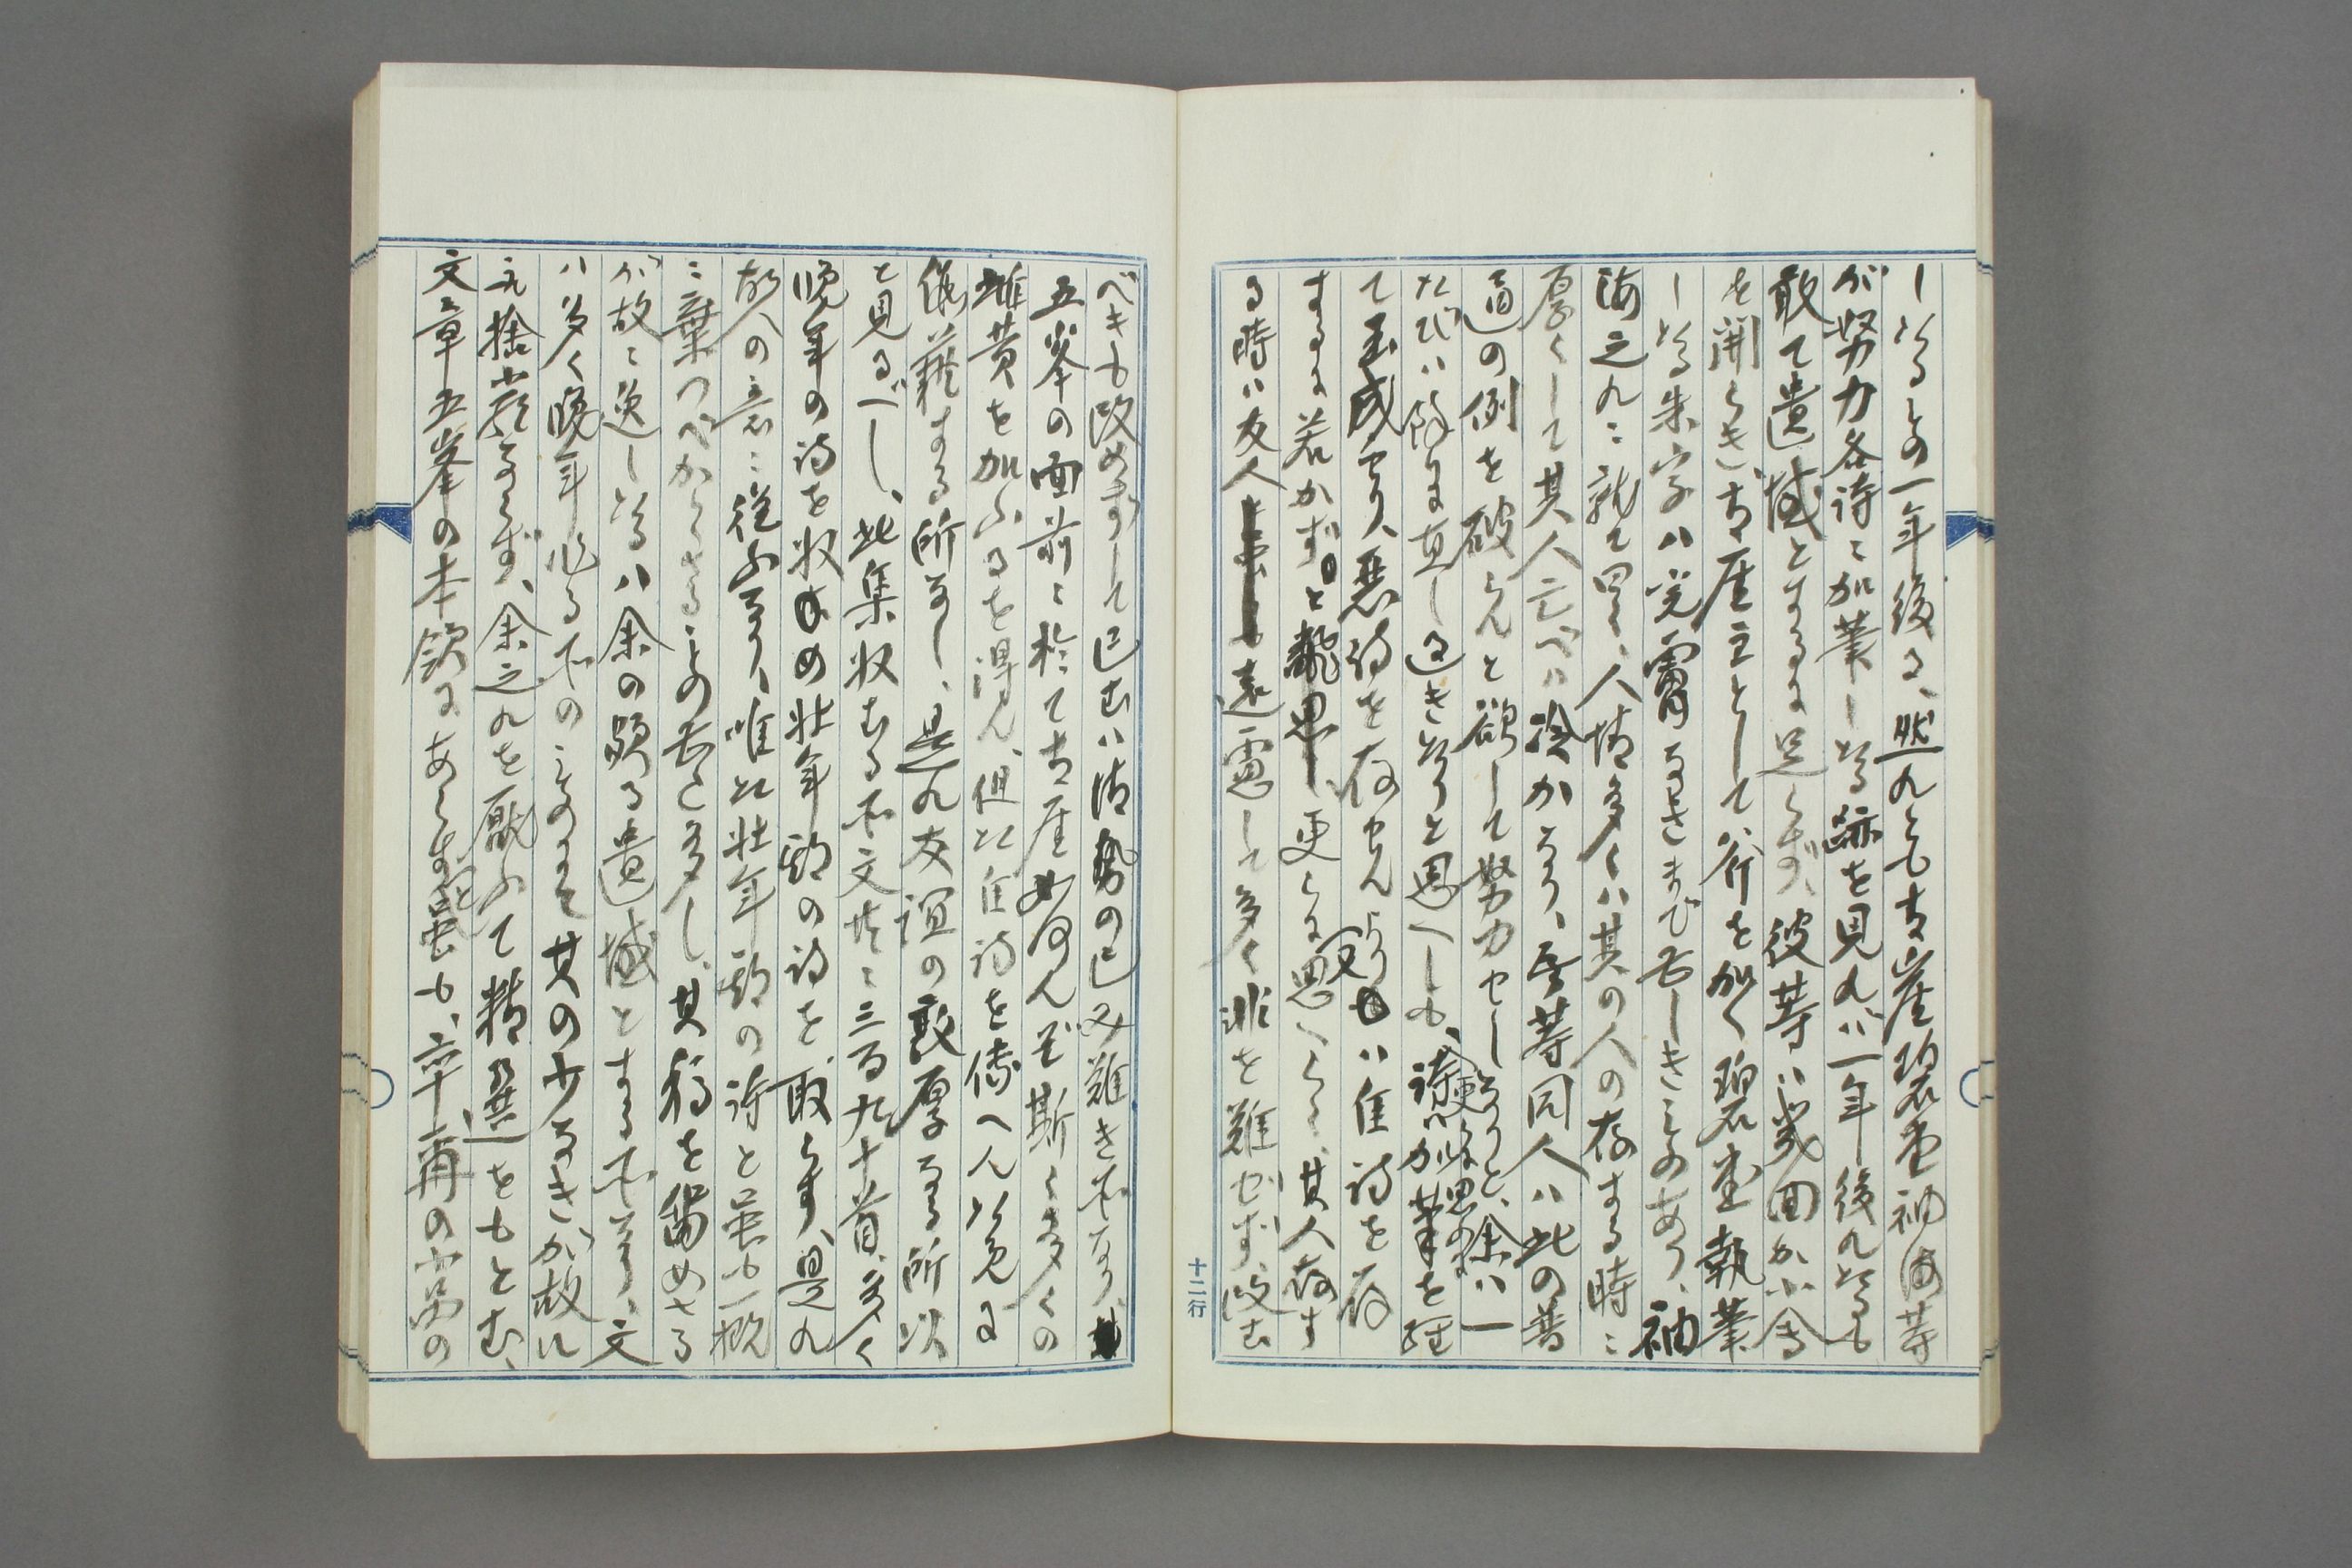 したるもの一年後る、然れとも古崖碧堂袖海等
が努力各詩に加筆したる跡を見れバ一年後れたるも
敢て遺憾とするに足らず、彼等ハ幾回か小会
を開らき、古崖主として斧を加へ碧堂執筆
したる朱字ハ完膚なきまで出しきものあり、袖
海之れに就て曰く、人情多くハ其の人の存する時に
厚くして其人亡べハ淡かなり、吾等同人ハ此の普
通の例を破らんと欲して努力せしなりと、余ハ一
たびハ餘に直し過ぎたりと思へしも、詩ハ加筆を経
て玉成せり、悪詩を存せんよりもハ佳詩を存
するに若かず、更らに思へらく、其人存す
る時ハ友人遠慮して多く非を難せず、改む
べきも改めずして已むハ情勢の已み難き所なり、
五峯の面前に於て古崖如何んぞ斯く多くの
雌黄を加ふるを得ん、但た佳詩を伝へんが為に
儘載する所なし、是れ友誼の敦厚なる所以
と見るべし、此集収むる所文共に三百九十首、多く
晩年の詩を収め壮年期の詩を取らず、是れ
故人の意に従ふなり、唯た壮年期の詩と雖も一概
に棄つべからさるもの甚た多し、其稿を留めさる
が故に逸したるハ余の頗る遺憾とする所なり、文
ハ多く晩年作る所のものにて其の少なきが故に
取捨嚴ならず、余之れを厭ふて精選をもとむ、
文章五峯の本領にあらずと雖も、六十一齊の